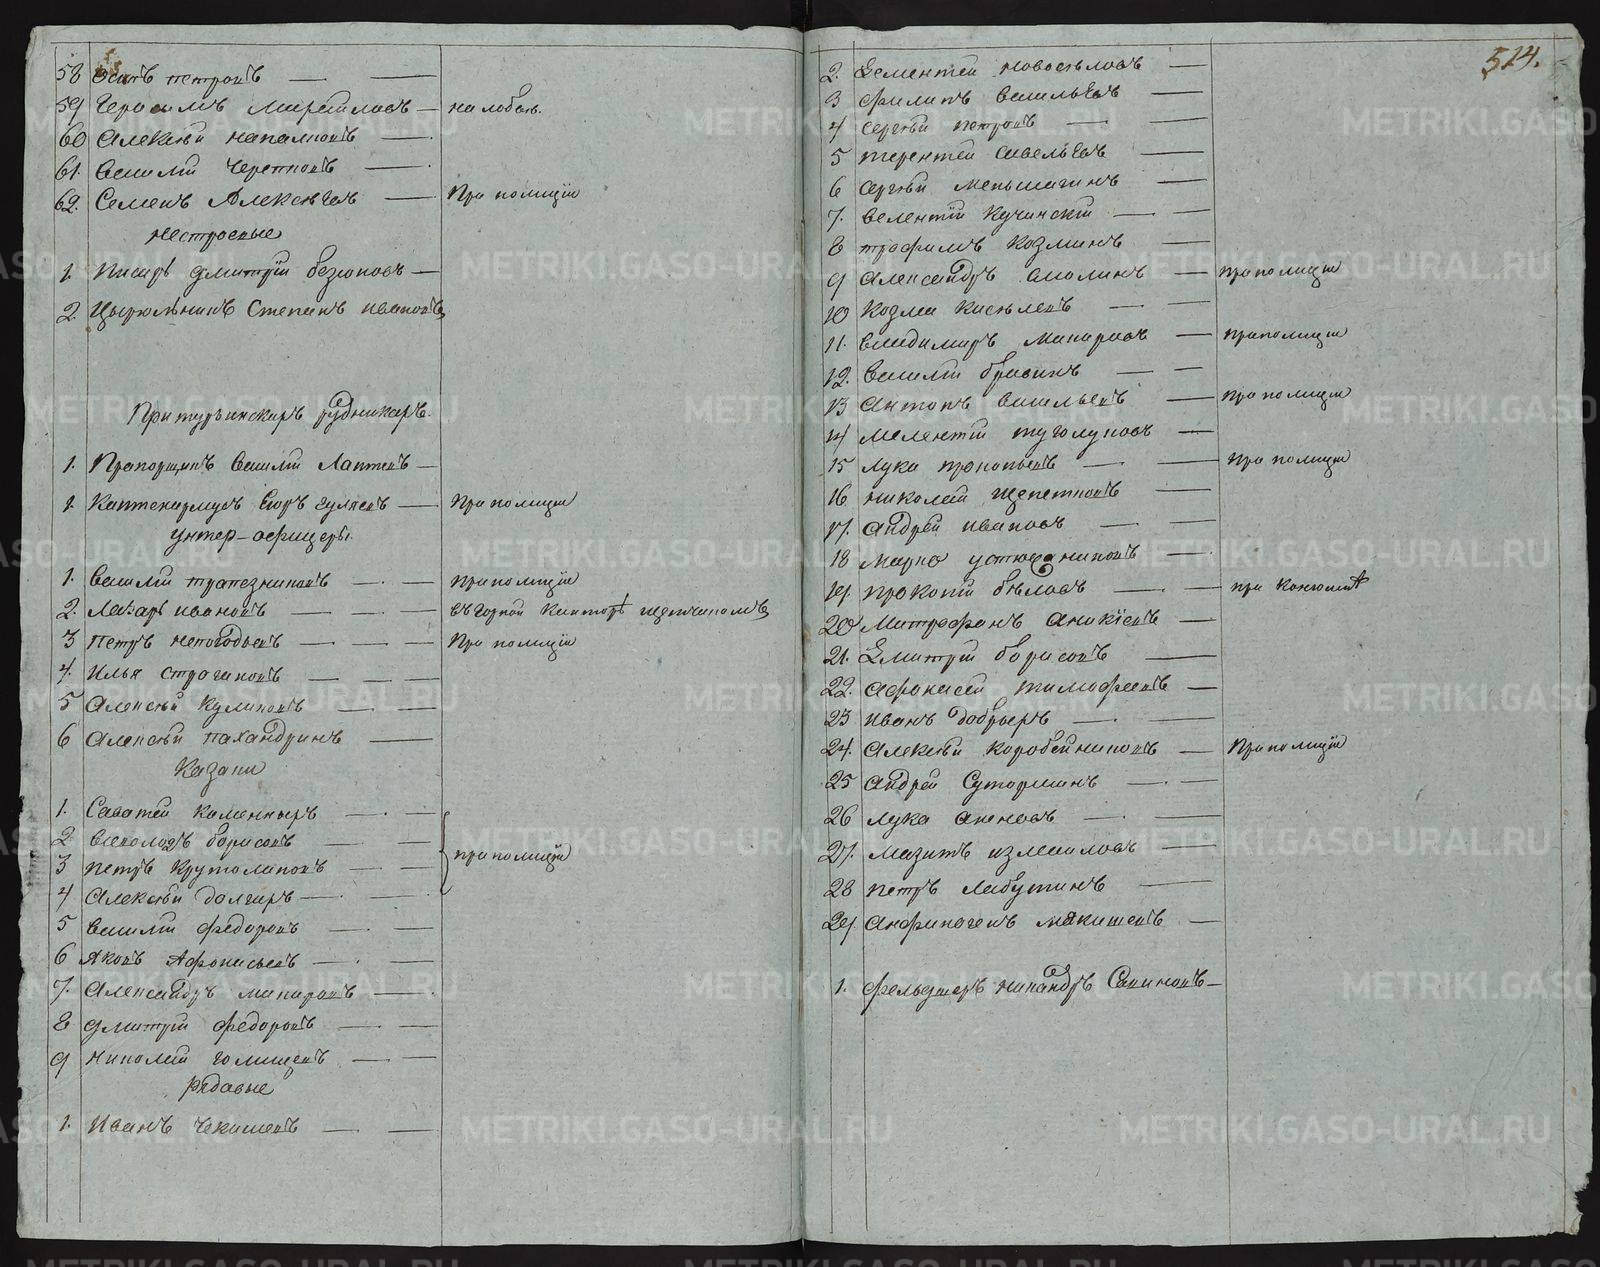 58 Осипъ петровъ
59 Герасимъ Мирсаиловъ — на лобов.
60 Алексѣй напалковъ
61. Василiй Черепновъ
62. Семенъ Алексѣевъ — При полицiи
нестроевые
1. Писарь дмитрiй безюковъ
2. Цырюльникъ Степанъ ивановъ
При турьинскихъ рудникахъ.
1. Прапорщикъ Василiй Лаптевъ
1. Каптенармусъ Егоръ гуляевъ — При полицiи
унтер-офицеры.
1. Василiй трапезниковъ — при полицiи
2. Лазарь ивановъ — въ горной Канторѣ щетчикомъ
3 петръ непогодьевъ — При полицiи
4. Илья строгановъ
5 Алексѣй Куликовъ
6 Алексѣй пахандринъ
Казаки
1. Саватей каменныхъ
2 Всеволодъ борисовъ
3 петръ Круталаповъ
при полицiи
4 Алексѣй долгихъ
5 Василiй федоровъ
6 Яковъ Афонасьевъ
7. Александръ макаровъ
8 дмитрiй федоровъ
9 николай голицевъ
Рядовые
1. Иванъ Чекашевъ
514.
2. Дементей новоселовъ
3 филипъ васильевъ
4 сергѣй петровъ
5 терентей савельевъ
6 сергѣй меньшагинъ
7. велентiй Кучинскiй
8 трофимъ козминъ
9 Александръ смолинъ — при полицiи
10 Козма киселевъ
11. владимиръ макаровъ — при полицiи
12. Василiй бравинъ
13 Антонъ васильевъ — при полицiи
14 мелентiй туголуковъ
15 лука прокопьевъ — при полицiи
16 николай щепетковъ
17. Андрей ивановъ
18 марко устюжаниковъ
19. прокопiй бѣловъ — при
20 Митрофанъ Аникiевъ
21. Дмитрiй борисовъ
22. Афонасей тимофеевъ
23 иванъ добрыхъ
24. Алексѣй коробейниковъ — При полицiи
25 Андрей Сутормин
26 лука
27. мазитъ измаиловъ
28 петръ лабутинъ
29. Анфиногенъ мякишевъ
1. фельдшеръ никандръ Савиновъ
METRIKI.GASO-URAL.RU